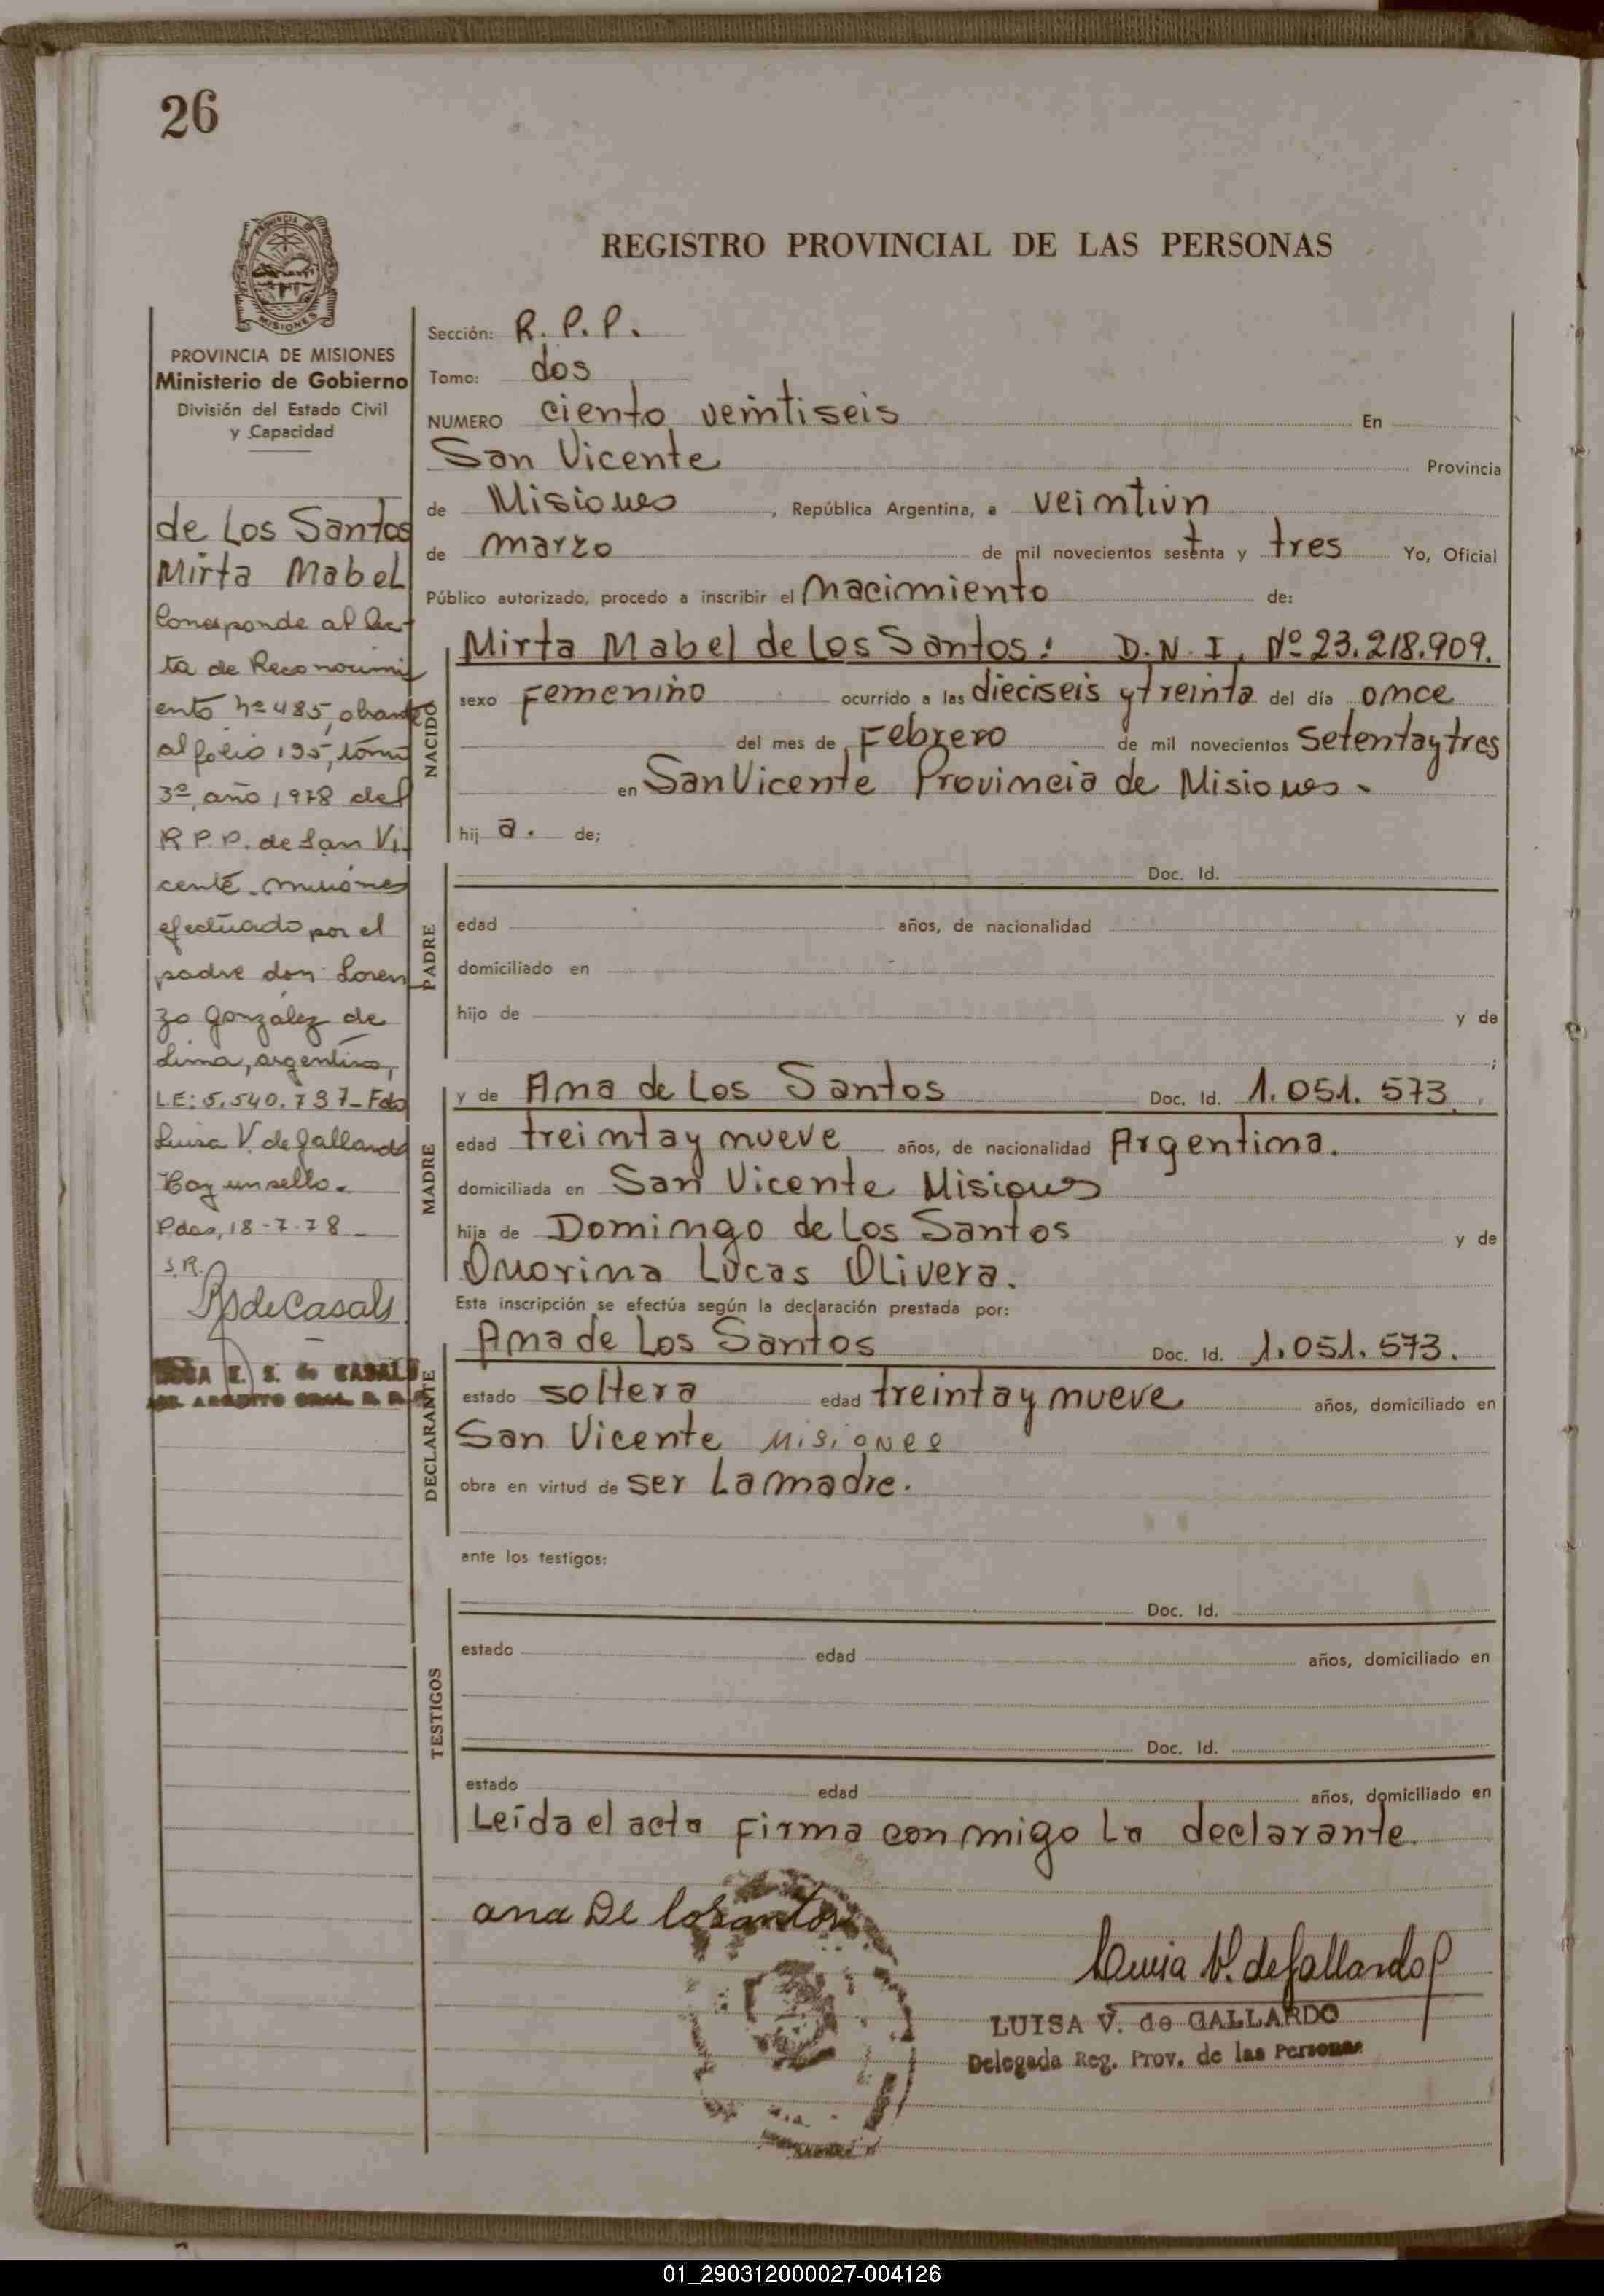 26
PROVINCIA DE
MISIONES
REGISTRO PROVINCIAL DE LAS PERSONAS
PROVINCIA DE MISIONES
Ministerio de Gobierno
División del Estado Civil
y Capacidad
de Los Santos
Mirta Mabel
Corresponde al Ac-
ta de Reconocimi
ento nº 485, obrante
al folio 195, tomo
3º, año 1978 del
R P.P. de San Vi-
cente. misiones
efectuado por el
padre don Loren
zo González de
Lima, argentino,
LE: 5.540.737_ Fdo
Luisa V. de Gallardo
Hay un sello.
Pdas, 18-7-78
S.R.
de Casals
E. S. de CASALS
Sección: R. P. P.
Tomo: dos
NUMERO ciento veintiseis En
San Vicente Provincia
de Misiones, República Argentina, a veintiun
de marzo de mil novecientos sesetnta y tres Yo, Oficial
Público autorizado, procedo a inscribir el nacimiento de:
NACIDO
Mirta Mabel de los Santos: D.N.I. Nº 23.218.909.
sexo Femenino ocurrido a las dieciseis y treinta del día once
del mes de Febrero de mil novecientos setenta y tres
en San Vicente Provincia de Misiones.
hij a. de;
PADRE
Doc. Id.
edad años, de nacionalidad
domiciliado en
hijo de y de
;
MADRE
y de Ana de Los Santos Doc. Id. 1.051.573.
edad treinta y nueve años, de nacionalidad Argentina.
domiciliada en San Vicente Misiones
hija de Domingo de Los Santos y de
Onorina Lucas Olivera.
Esta inscripción se efectúa según la declaración prestada por:
DECLARANTE
Ana de Los Santos Doc. Id. 1.051.573.
estado soltera edad treinta y nueve años, domiciliado en
San Vicente Misiones
obra en virtud de ser La madre.
ante los testigos:
TESTIGOS
Doc. Id.
estado edad años, domiciliado en
Doc. Id.
estado edad años, domiciliado en
Leída el acta Firma conmigo La declarante.
ana De losantos
Luisa V. de Gallardo
LUISA V. de GALLARDO
Delegada Reg. Prov. de las Personas
01_290312000027-004126